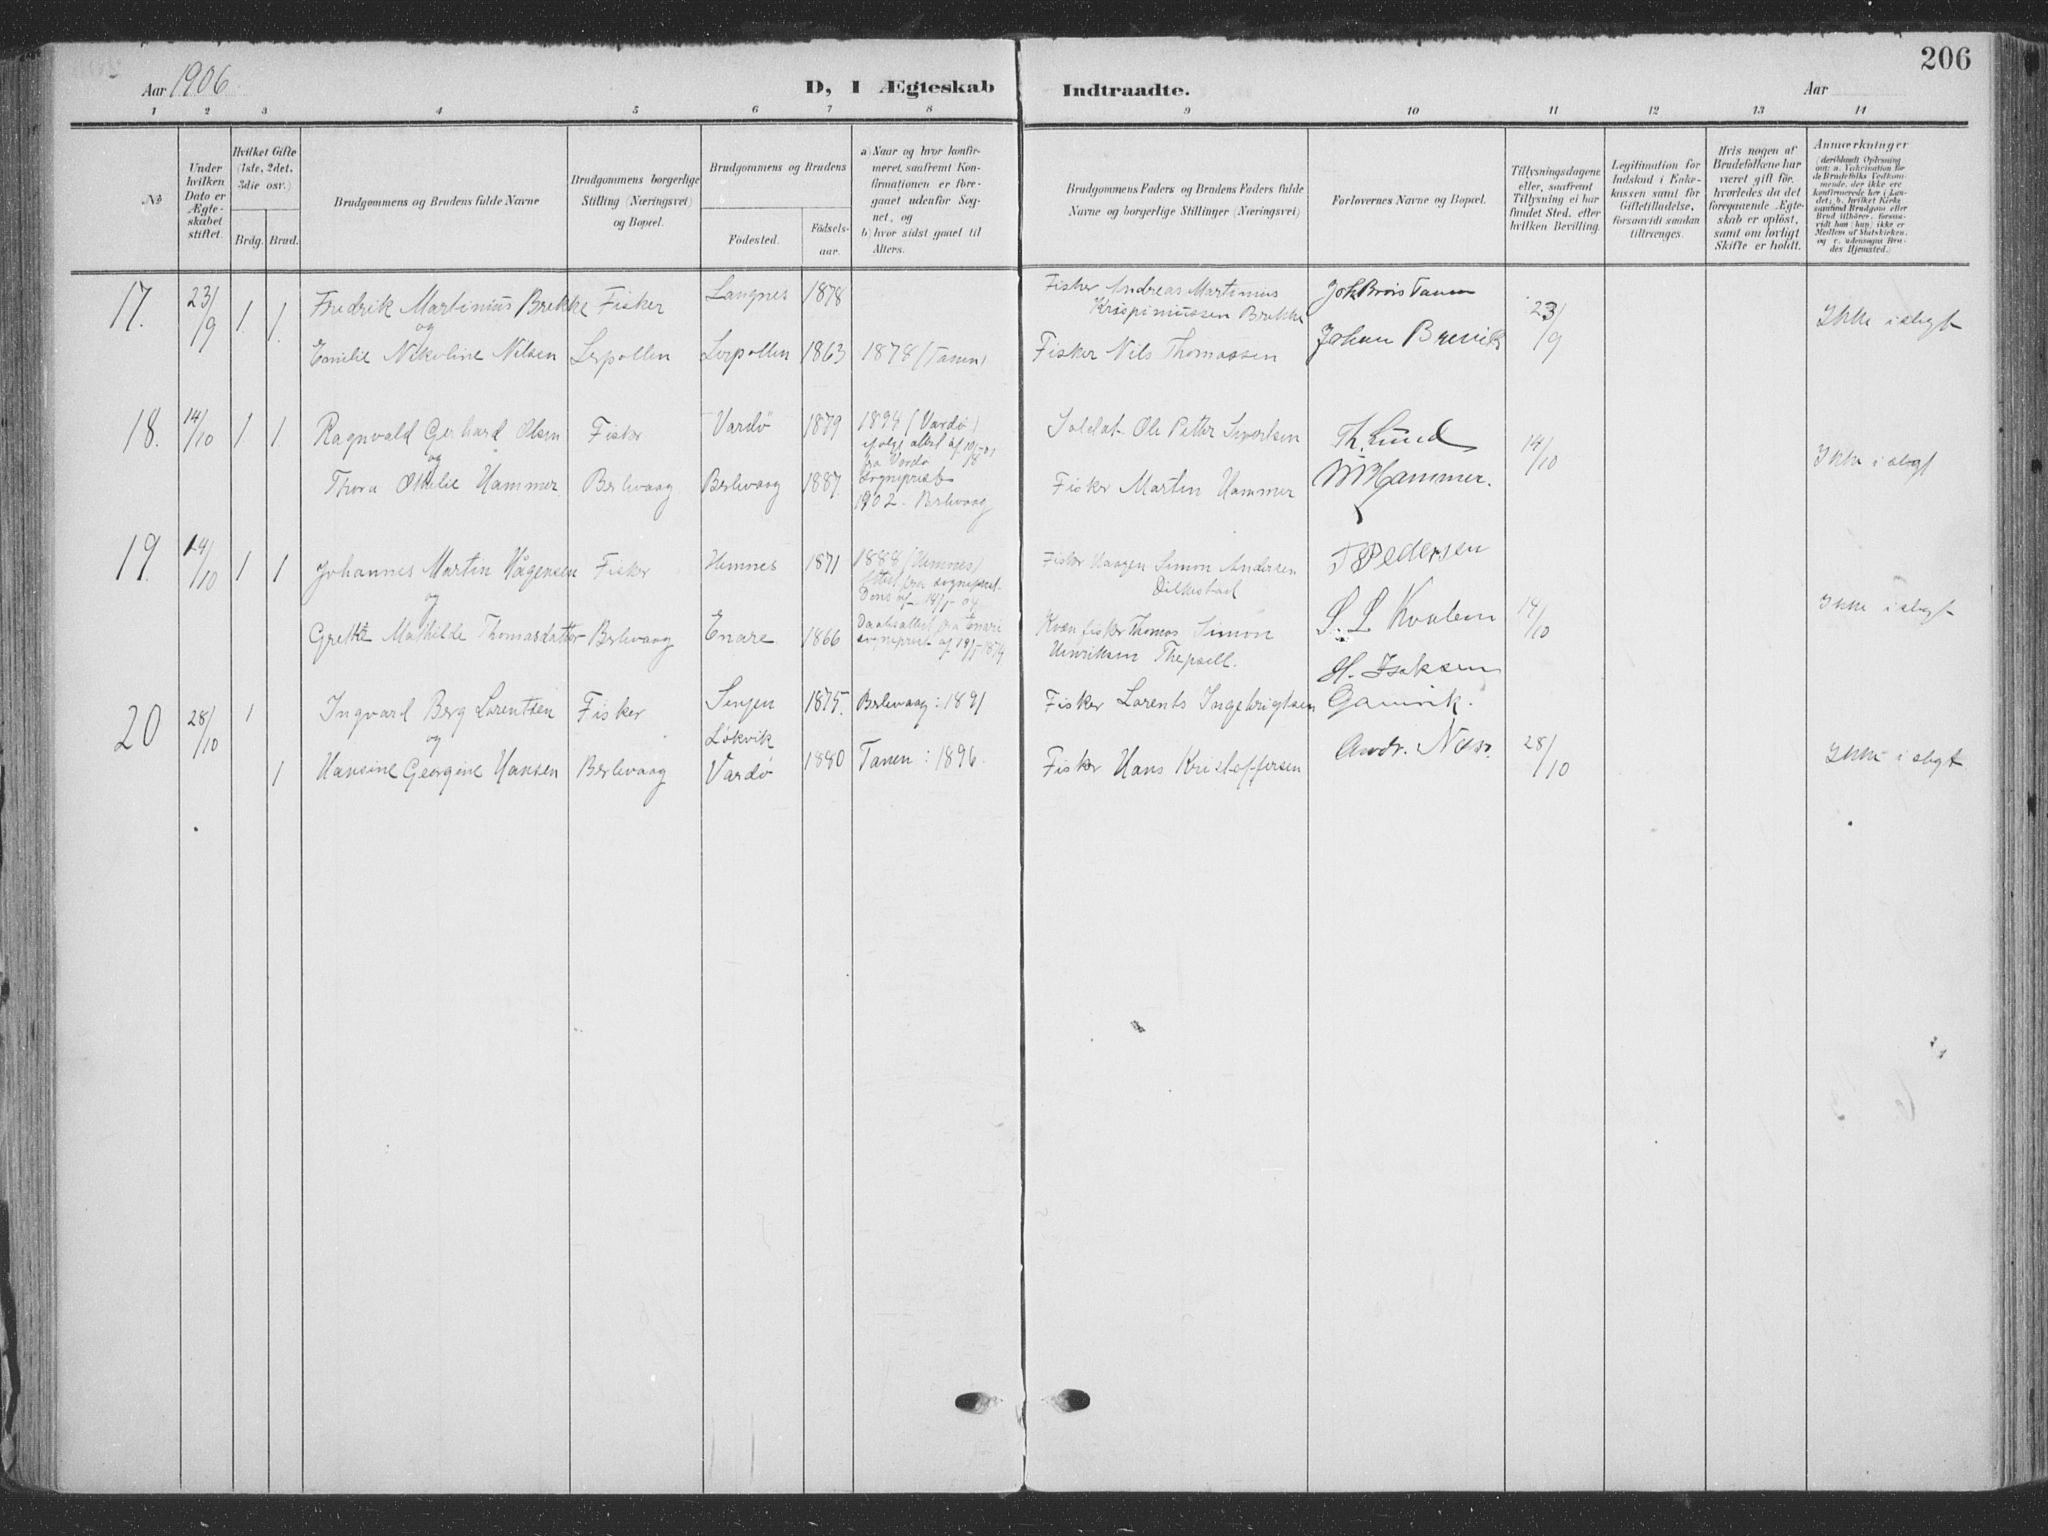 206
Aar 1906
D, I Ægteskab Indtraadte.
Aar
1 2 3 4 5 6 7 8 9 10 11 12 13 14
No
Under hvilken Dato er Ægteskabet stiftet.
Hvilket Gifte (1ste, 2det, 3die osv.)
Brdg. Brud.
Brudgommens og Brudens fulde Navne
Brudgommens borgerlige Stilling (Næringsvei) og Bopæl.
Brudgommens og Brudens
Fødested.
Fødselsaar.
a) Naar og hvor konfirmeret, saafremt Konfirmationen er foregaaet udenfor Sognet, og
b) hvor sidst gaaet til Alters.
Brudgommens Faders og Brudens Faders fulde Navne og borgerlige Stillinger (Næringsvei)
Forlovernes Navne og Bopæl.
Tillysningsdagene eller, saafremt Tillysning ei har fundet Sted, efter hvilken Bevilling.
Legitimation for Indskud i Enkekassen samt for Giftetilladelse, forsaavidt saadan tiltrænges.
Hvis nogen af Brudefolkene har været gift før, hvorledes da det foregaaende Ægteskab er opløst, samt om lovligt Skifte er holdt.
Anmærkninger
(deriblandt Oplysning om: a. Vakcination for de Brudefolks Vedkommende, der ikke ere konfirmerede her i Landet; b. hvilket Kirkesamfund Brudgom eller Brud tilhører, forsaavidt han (hun) ikke er Medlem af Statskirken, og c. udensogns Brudes Hjemsted.)
17. 23/9 1 1 Fredrik Martinius Brekke Fisker Langnes 1878 Fisker Andreas Martinus Krispinussen Brekke
og
Emilie Nikoline Nilsen Lerpollen Lerpollen 1863 1878 (Tanen) Fisker Nils Thomassen
Johan Brevik 23/9 Ikke i slegt
18. 14/10 1 1 Ragnvald Gerhard Olsen Fisker Vardø 1879 1894 (Vardø) Soldat Ole Petter Sivertsen Th. Lund
og
Thora Othilie Hammer Berlevaag Berlevaag 1887. 1902 - Berlevaag Fisker Martin Hammer
M Hammer. 14/10 Ikke i slegt
19. 14/10 1 1 Johannes Martin Hågensen Fisker Hemnes 1871 1888 (Hemnes) Fisker Haagen Simon Andersen
og
Grette Mathilde Thomasdatter Berlevaag Enare 1866 Daabsattest fra Enare
Kvæn fisker Thomas Simon Henriksen
Pedersen
S. L. Kvalem 14/10 Ikke i slegt
20 28/10 1 Ingvard Berg Lorentsen Fisker Senjen 1875. Berlevaag: 1891 Fisker Lorents Ingebrigtsen
H. Isaksen
Gamvik.
og Løkvik
1 Hansine Georgine Hansen Berlevaag Vardø 1880 Tanen: 1896. Fisker Hans Kristoffersen
28/10 Ikke i slegt